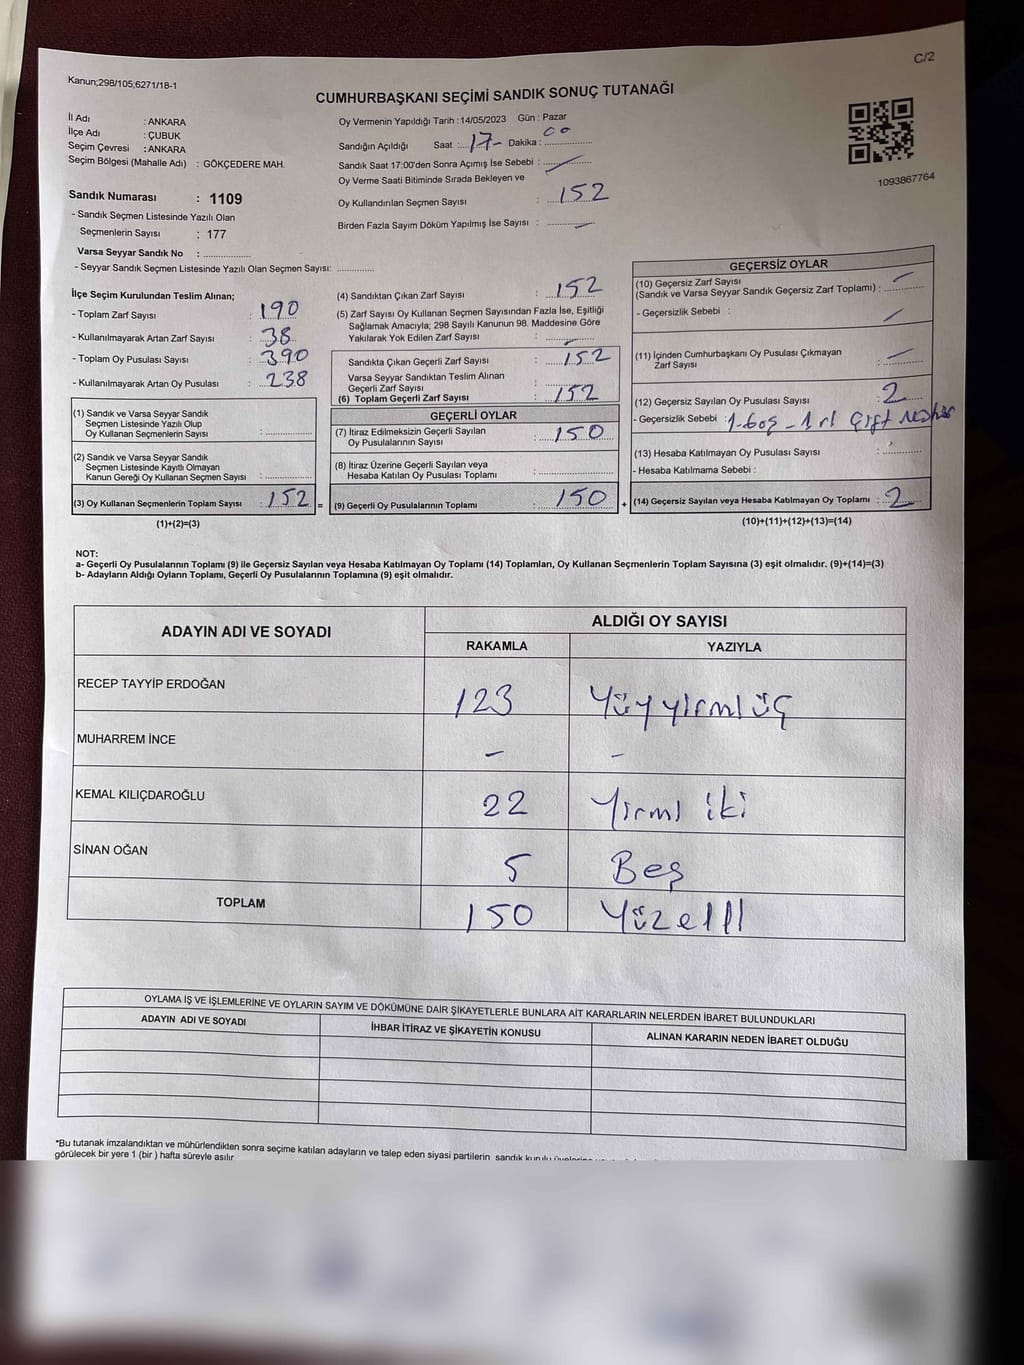 C/2
Kanun;298/105;6271/18-1
CUMHURBAŞKANI SEÇİMİ SANDIK SONUÇ TUTANAĞI
İl Adı : ANKARA
İlçe Adı : ÇUBUK
Seçim Çevresi : ANKARA
Seçim Bölgesi (Mahalle Adı) : GÖKÇEDERE MAH.
Oy Vermenin Yapıldığı Tarih : 14/05/2023 Gün : Pazar
Sandığın Açıldığı Saat :.. 17- Dakika : 00
Sandık Saat 17:00'den Sonra Açımış İse Sebebi :
Oy Verme Saati Bitiminde Sırada Bekleyen ve
Oy Kullandırılan Seçmen Sayısı : 152
Birden Fazla Sayım Döküm Yapılmış İse Sayısı : -
1093867764
Sandık Numarası : 1109
- Sandık Seçmen Listesinde Yazılı Olan
Seçmenlerin Sayısı : 177
Varsa Seyyar Sandık No :
- Seyyar Sandık Seçmen Listesinde Yazılı Olan Seçmen Sayısı:
İlçe Seçim Kurulundan Teslim Alınan;
- Toplam Zarf Sayısı : 190
- Kullanılmayarak Artan Zarf Sayısı : 38
- Toplam Oy Pusulası Sayısı : 390
- Kullanılmayarak Artan Oy Pusulası : 238
(1) Sandık ve Varsa Seyyar Sandık
Seçmen Listesinde Yazılı Olup
Oy Kullanan Seçmenlerin Sayısı :
(2) Sandık ve Varsa Seyyar Sandık
Seçmen Listesinde Kayıtlı Olmayan
Kanun Gereği Oy Kullanan Seçmen Sayısı :
(3) Oy Kullanan Seçmenlerin Toplam Sayısı : 152 =
(1)+(2)=(3)
(4) Sandıktan Çıkan Zarf Sayısı : 152
(5) Zarf Sayısı Oy Kullanan Seçmen Sayısından Fazla İse, Eşitliği
Sağlamak Amacıyla; 298 Sayılı Kanunun 98. Maddesine Göre
Yakılarak Yok Edilen Zarf Sayısı : -
Sandıkta Çıkan Geçerli Zarf Sayısı : 152
Varsa Seyyar Sandıktan Teslim Alınan
Geçerli Zarf Sayısı :
(6) Toplam Geçerli Zarf Sayısı : 152
GEÇERLİ OYLAR
(7) İtiraz Edilmeksizin Geçerli Sayılan
Oy Pusulalarının Sayısı : 150
(8) İtiraz Üzerine Geçerli Sayılan veya
Hesaba Katılan Oy Pusulası Toplamı :
(9) Geçerli Oy Pusulalarının Toplamı : 150 +
GEÇERSİZ OYLAR
(10) Geçersiz Zarf Sayısı
(Sandık ve Varsa Seyyar Sandık Geçersiz Zarf Toplamı) : -
- Geçersizlik Sebebi : -
(11) İçinden Cumhurbaşkanı Oy Pusulası Çıkmayan
Zarf Sayısı : -
(12) Geçersiz Sayılan Oy Pusulası Sayısı : 2
- Geçersizlik Sebebi : 1-boş - 1 çift
(13) Hesaba Katılmayan Oy Pusulası Sayısı :
- Hesaba Katılmama Sebebi :
(14) Geçersiz Sayılan veya Hesaba Katılmayan Oy Toplamı : 2
(10)+(11)+(12)+(13)=(14)
NOT:
a- Geçerli Oy Pusulalarının Toplamı (9) ile Geçersiz Sayılan veya Hesaba Katılmayan Oy Toplamı (14) Toplamları, Oy Kullanan Seçmenlerin Toplam Sayısına (3) eşit olmalıdır. (9)+(14)=(3)
b- Adayların Aldığı Oyların Toplamı, Geçerli Oy Pusulalarının Toplamına (9) eşit olmalıdır.
ADAYIN ADI VE SOYADI
ALDIĞI OY SAYISI
RAKAMLA YAZIYLA
RECEP TAYYİP ERDOĞAN 123 Yüzyirmiüç
MUHARREM İNCE - -
KEMAL KILIÇDAROĞLU 22 Yirmi iki
SİNAN OĞAN 5 Beş
TOPLAM 150 Yüzelli
OYLAMA İŞ VE İŞLEMLERİNE VE OYLARIN SAYIM VE DÖKÜMÜNE DAİR ŞİKAYETLERLE BUNLARA AİT KARARLARIN NELERDEN İBARET BULUNDUKLARI
ADAYIN ADI VE SOYADI İHBAR İTİRAZ VE ŞİKAYETİN KONUSU ALINAN KARARIN NEDEN İBARET OLDUĞU
*Bu tutanak imzalandıktan ve mühürlendikten sonra seçime katılan adayların ve talep eden siyasi partilerin sandık kurulu
görülecek bir yere 1 (bir ) hafta süreyle asılır